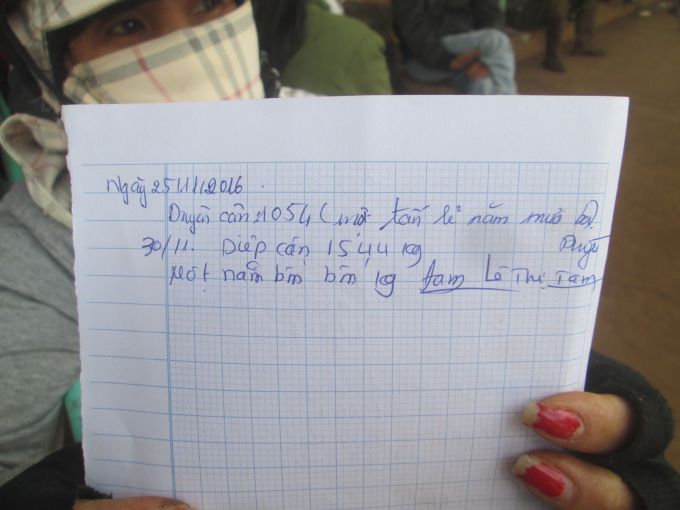 Ngày 25/11/2016.
Duyên cân: 1054 (một tấn lẻ năm mươi bốn).
30/11. Diệp cân 1544 kg Duyên
Một năm bốn bốn kg Tam Lê Thị Tam